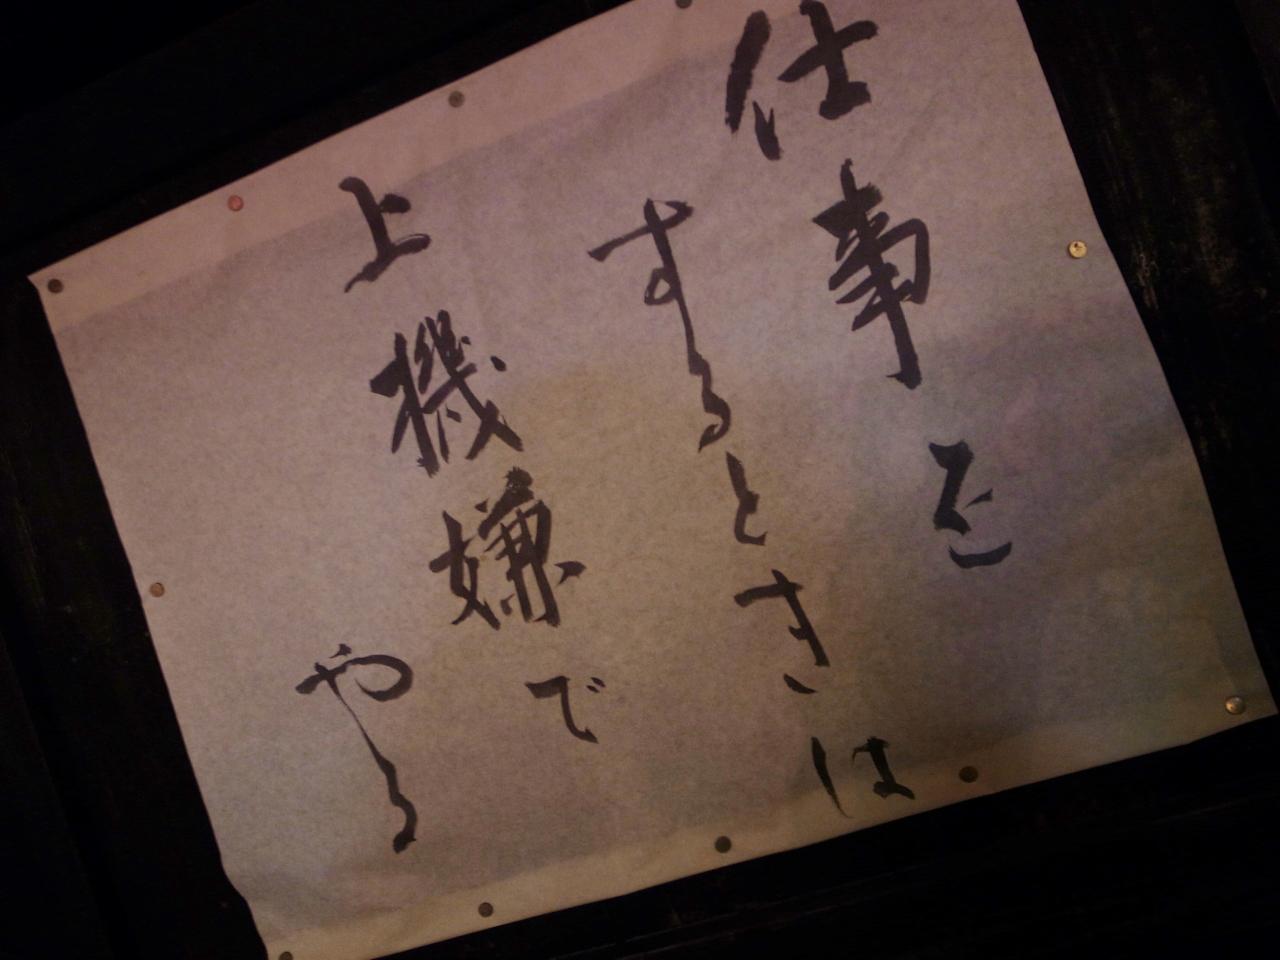 仕事を
するときは
上機嫌で
やる